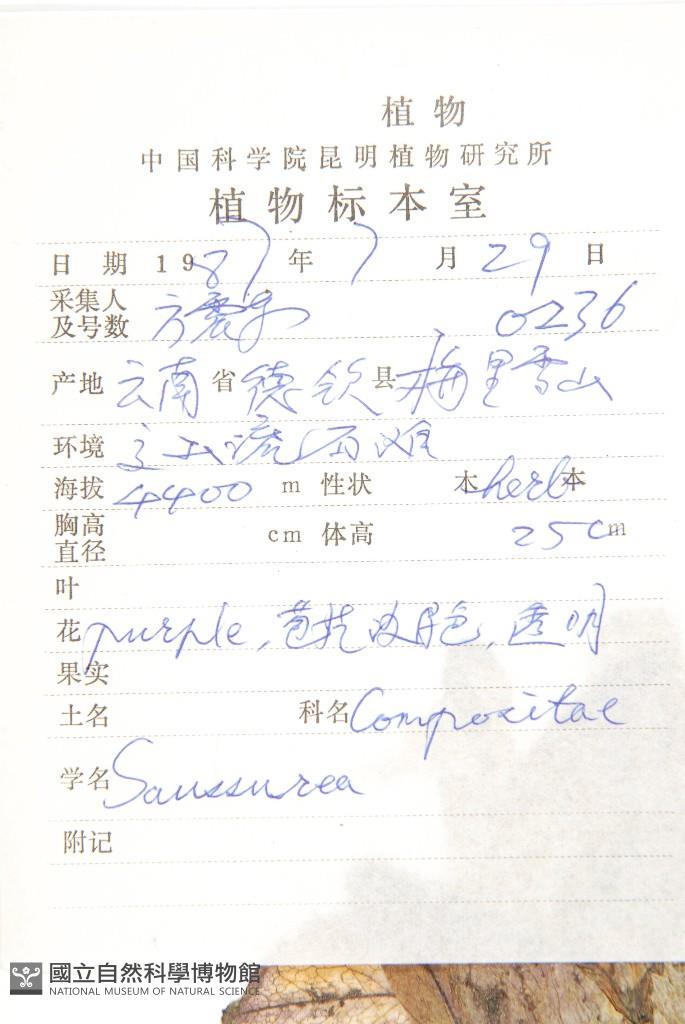 植物
中国科学院昆明植物研究所
植物标本室
日期 1987年7月29日
采集人及号数 方震东 0236
产地 云南省德钦县梅里雪山
环境
海拔 4400 m 性状 本herb本
胸高直径 cm 体高 25cm
叶
花 purple, 苞片 色, 透明
果实
土名 科名 Compositae
学名 Saussurea
附记
國立自然科學博物館
NATIONAL MUSEUM OF NATURAL SCIENCE